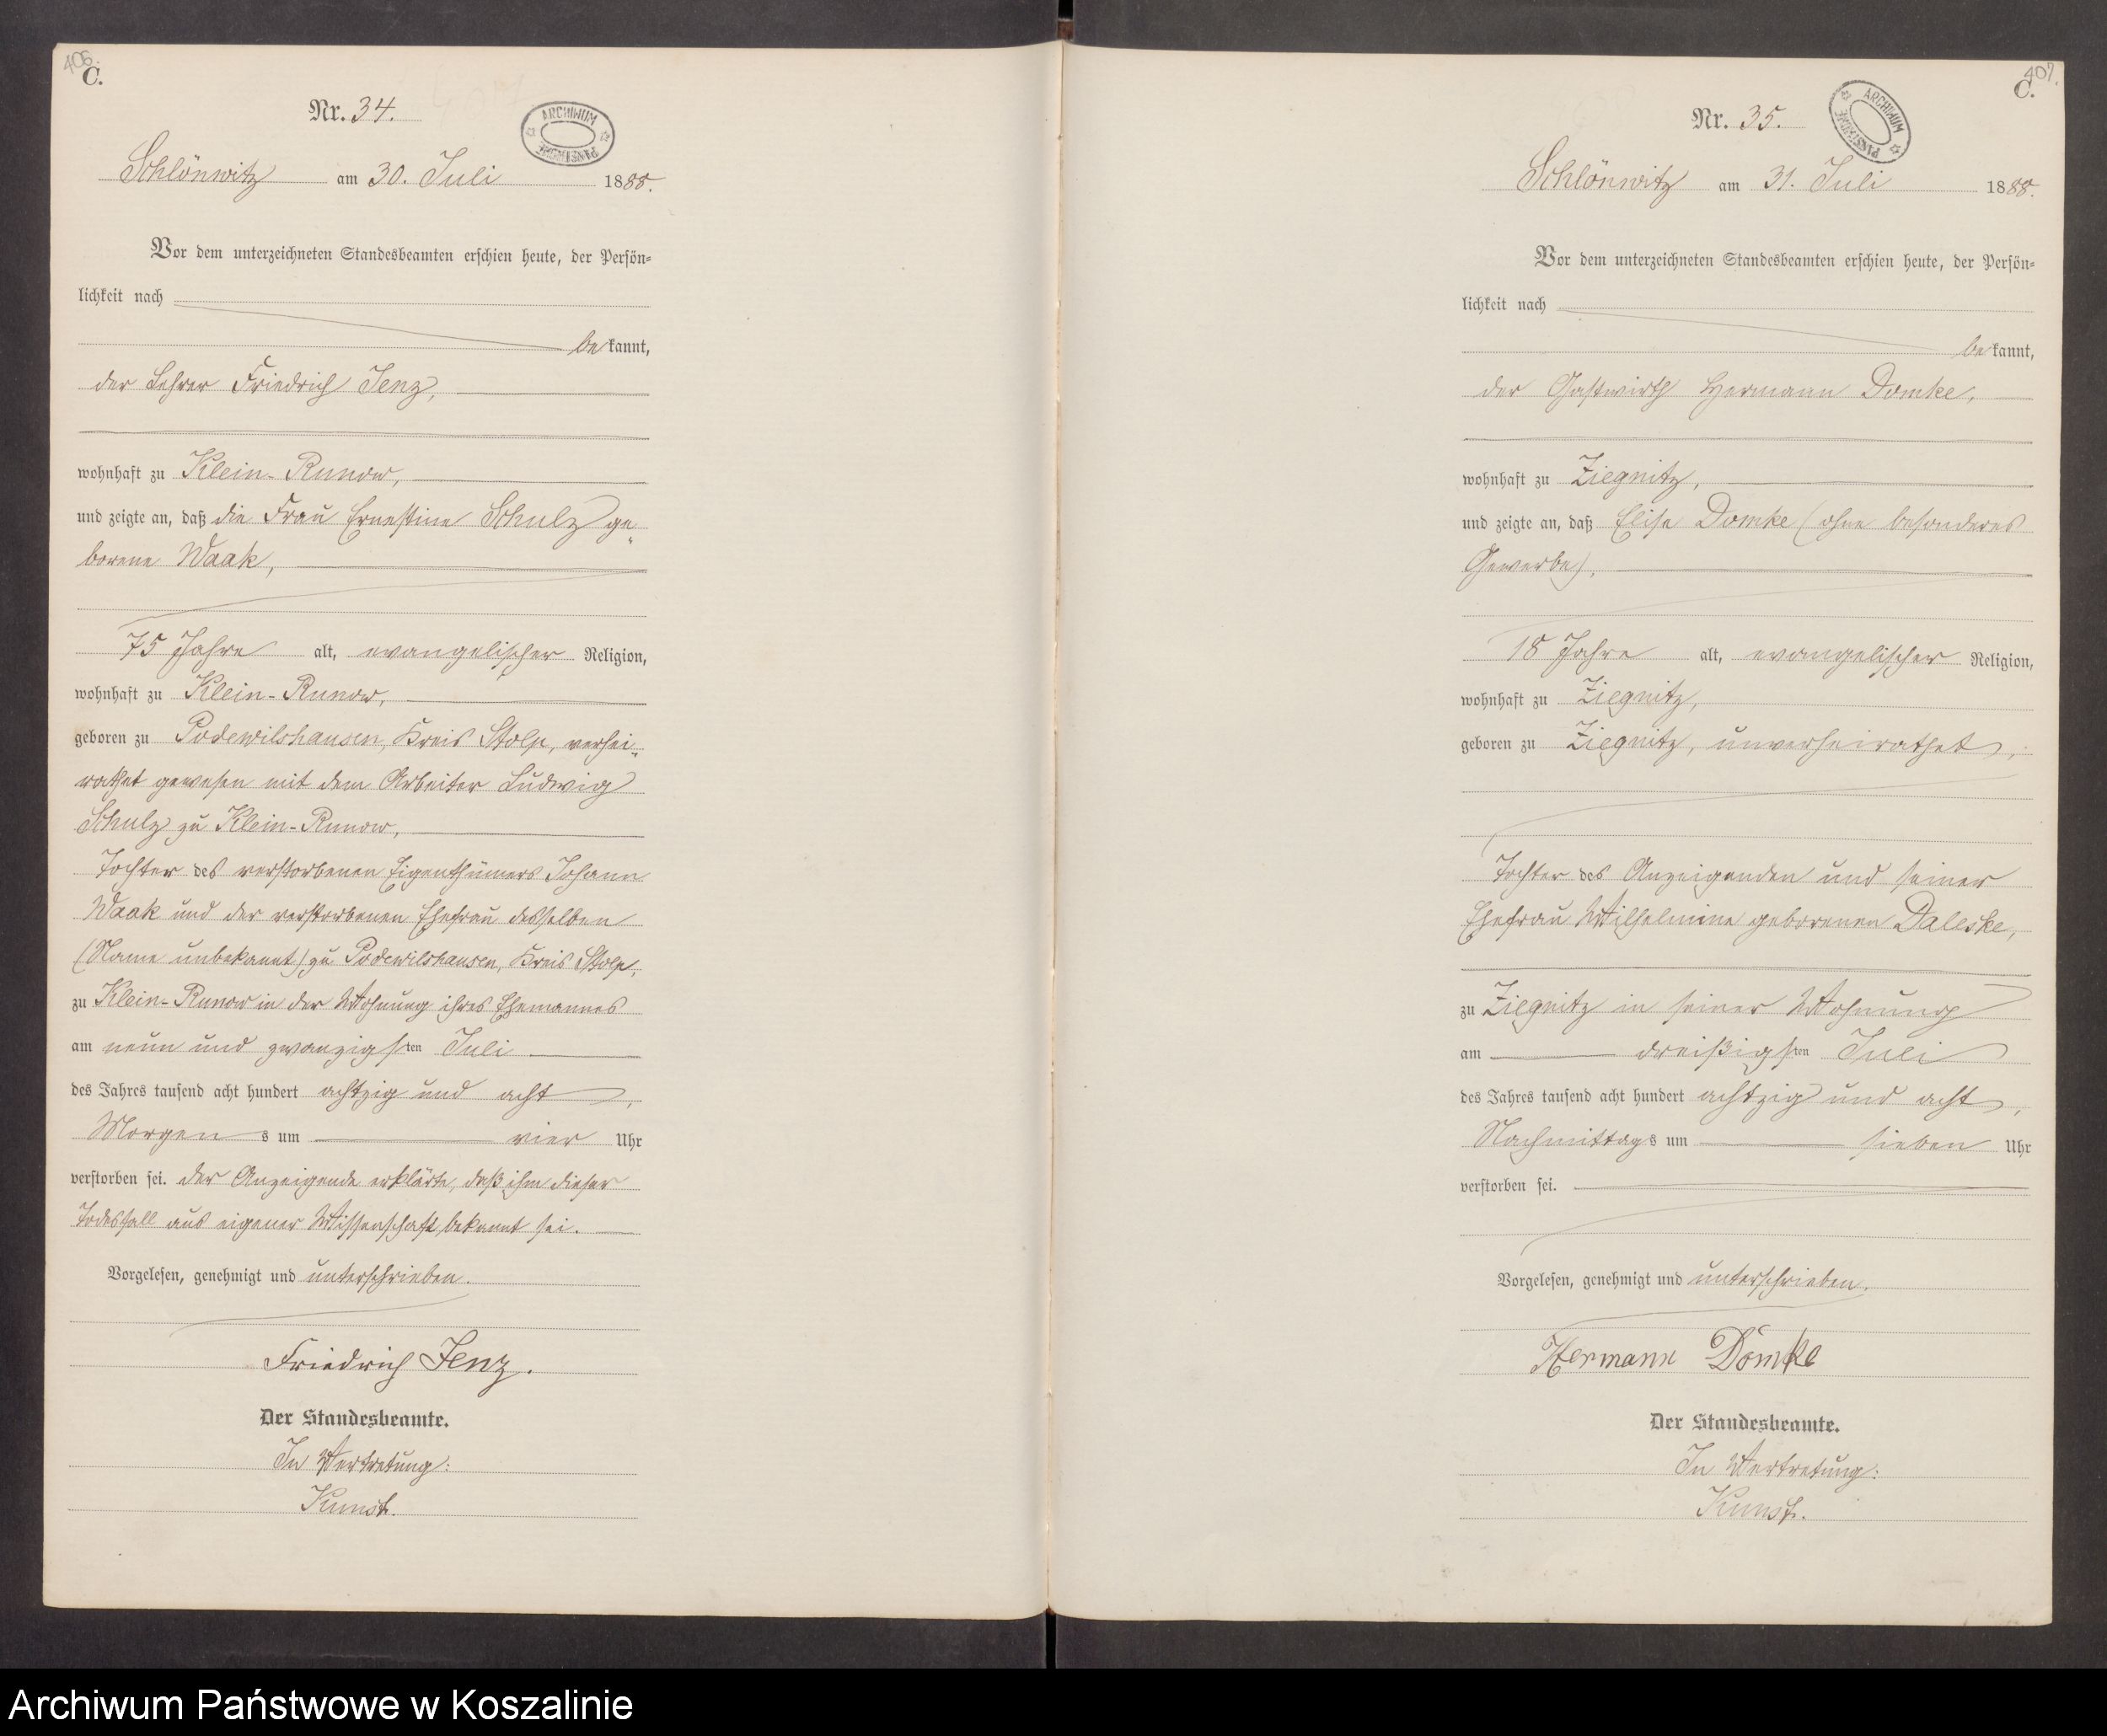 406.
C.
Nr. 34.
ARCHIWUM PAŃSTWOWE
Schlönwitz am 30. Juli 1888.
Vor dem unterzeichneten Standesbeamten erschien heute, der Persön-
lichkeit nach
bekannt,
der Lehrer Friedrich Jenz,
wohnhaft zu Klein-Runow,
und zeigte an, daß die Frau Ernestine Schulz ge-
borene Waak,
75 Jahre alt, evangelischer Religion,
wohnhaft zu Klein-Runow,
geboren zu Podewilshausen, Kreis Stolp, verhei-
rathet gewesen mit dem Arbeiter Ludwig
Schulz zu Klein-Runow,
Tochter des verstorbenen Eigenthümers Johann
Waak und der verstorbenen Ehefrau desselben
(Name unbekannt) zu Podewilshausen, Kreis Stolp,
zu Klein-Runow in der Wohnung ihres Ehemannes
am neun und zwanzigsten Juli
des Jahres tausend acht hundert achtzig und acht,
Morgens um vier Uhr
verstorben sei. der Anzeigende erklärte, daß ihm dieser
Todesfall aus eigener Wissenschaft bekannt sei.
Vorgelesen, genehmigt und unterschrieben.
Friedrich Jenz.
Der Standesbeamte.
In Vertretung:
Kunst.
407.
C.
Nr. 35.
ARCHIWUM PAŃSTWOWE
Schlönwitz am 31. Juli 1888.
Vor dem unterzeichneten Standesbeamten erschien heute, der Persön-
lichkeit nach
bekannt,
der Gastwirth Hermann Domke,
wohnhaft zu Ziegnitz,
und zeigte an, daß Elise Domke (ohne besonderes
Gewerbe),
18 Jahre alt, evangelischer Religion,
wohnhaft zu Ziegnitz,
geboren zu Ziegnitz, unverheirathet,
Tochter des Anzeigenden und seiner
Ehefrau Wilhelmine geborenen Daleske,
zu Ziegnitz in seiner Wohnung
am dreißigsten Juli
des Jahres tausend acht hundert achtzig und acht,
Nachmittags um sieben Uhr
verstorben sei.
Vorgelesen, genehmigt und unterschrieben.
Hermann Domke
Der Standesbeamte.
In Vertretung:
Kunst.
Archiwum Państwowe w Koszalinie